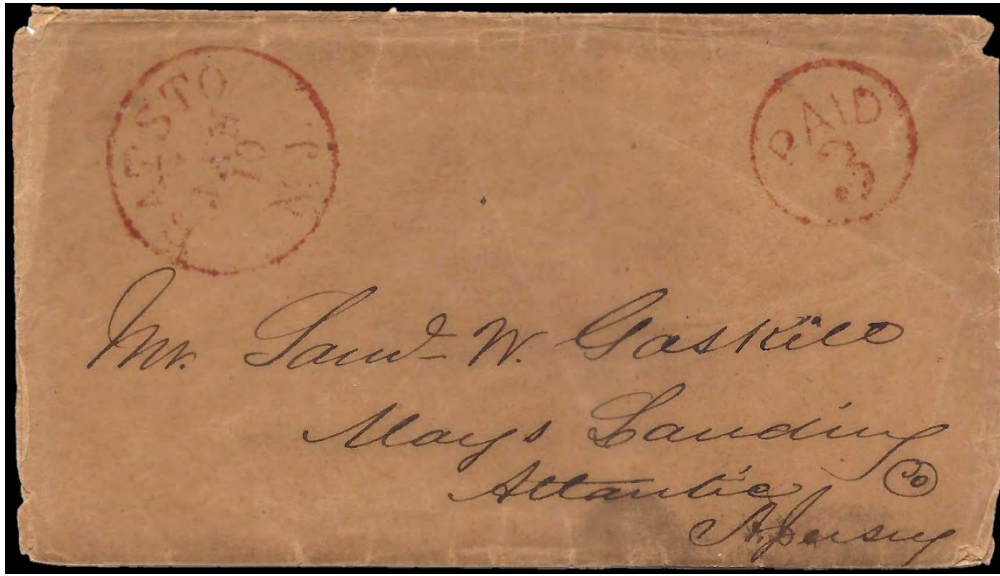 ATSTO
JAN
10
N J
PAID
3
Mr. Saml W. Gaskill
Mays Landing
Atlantic Co
N. Jersey